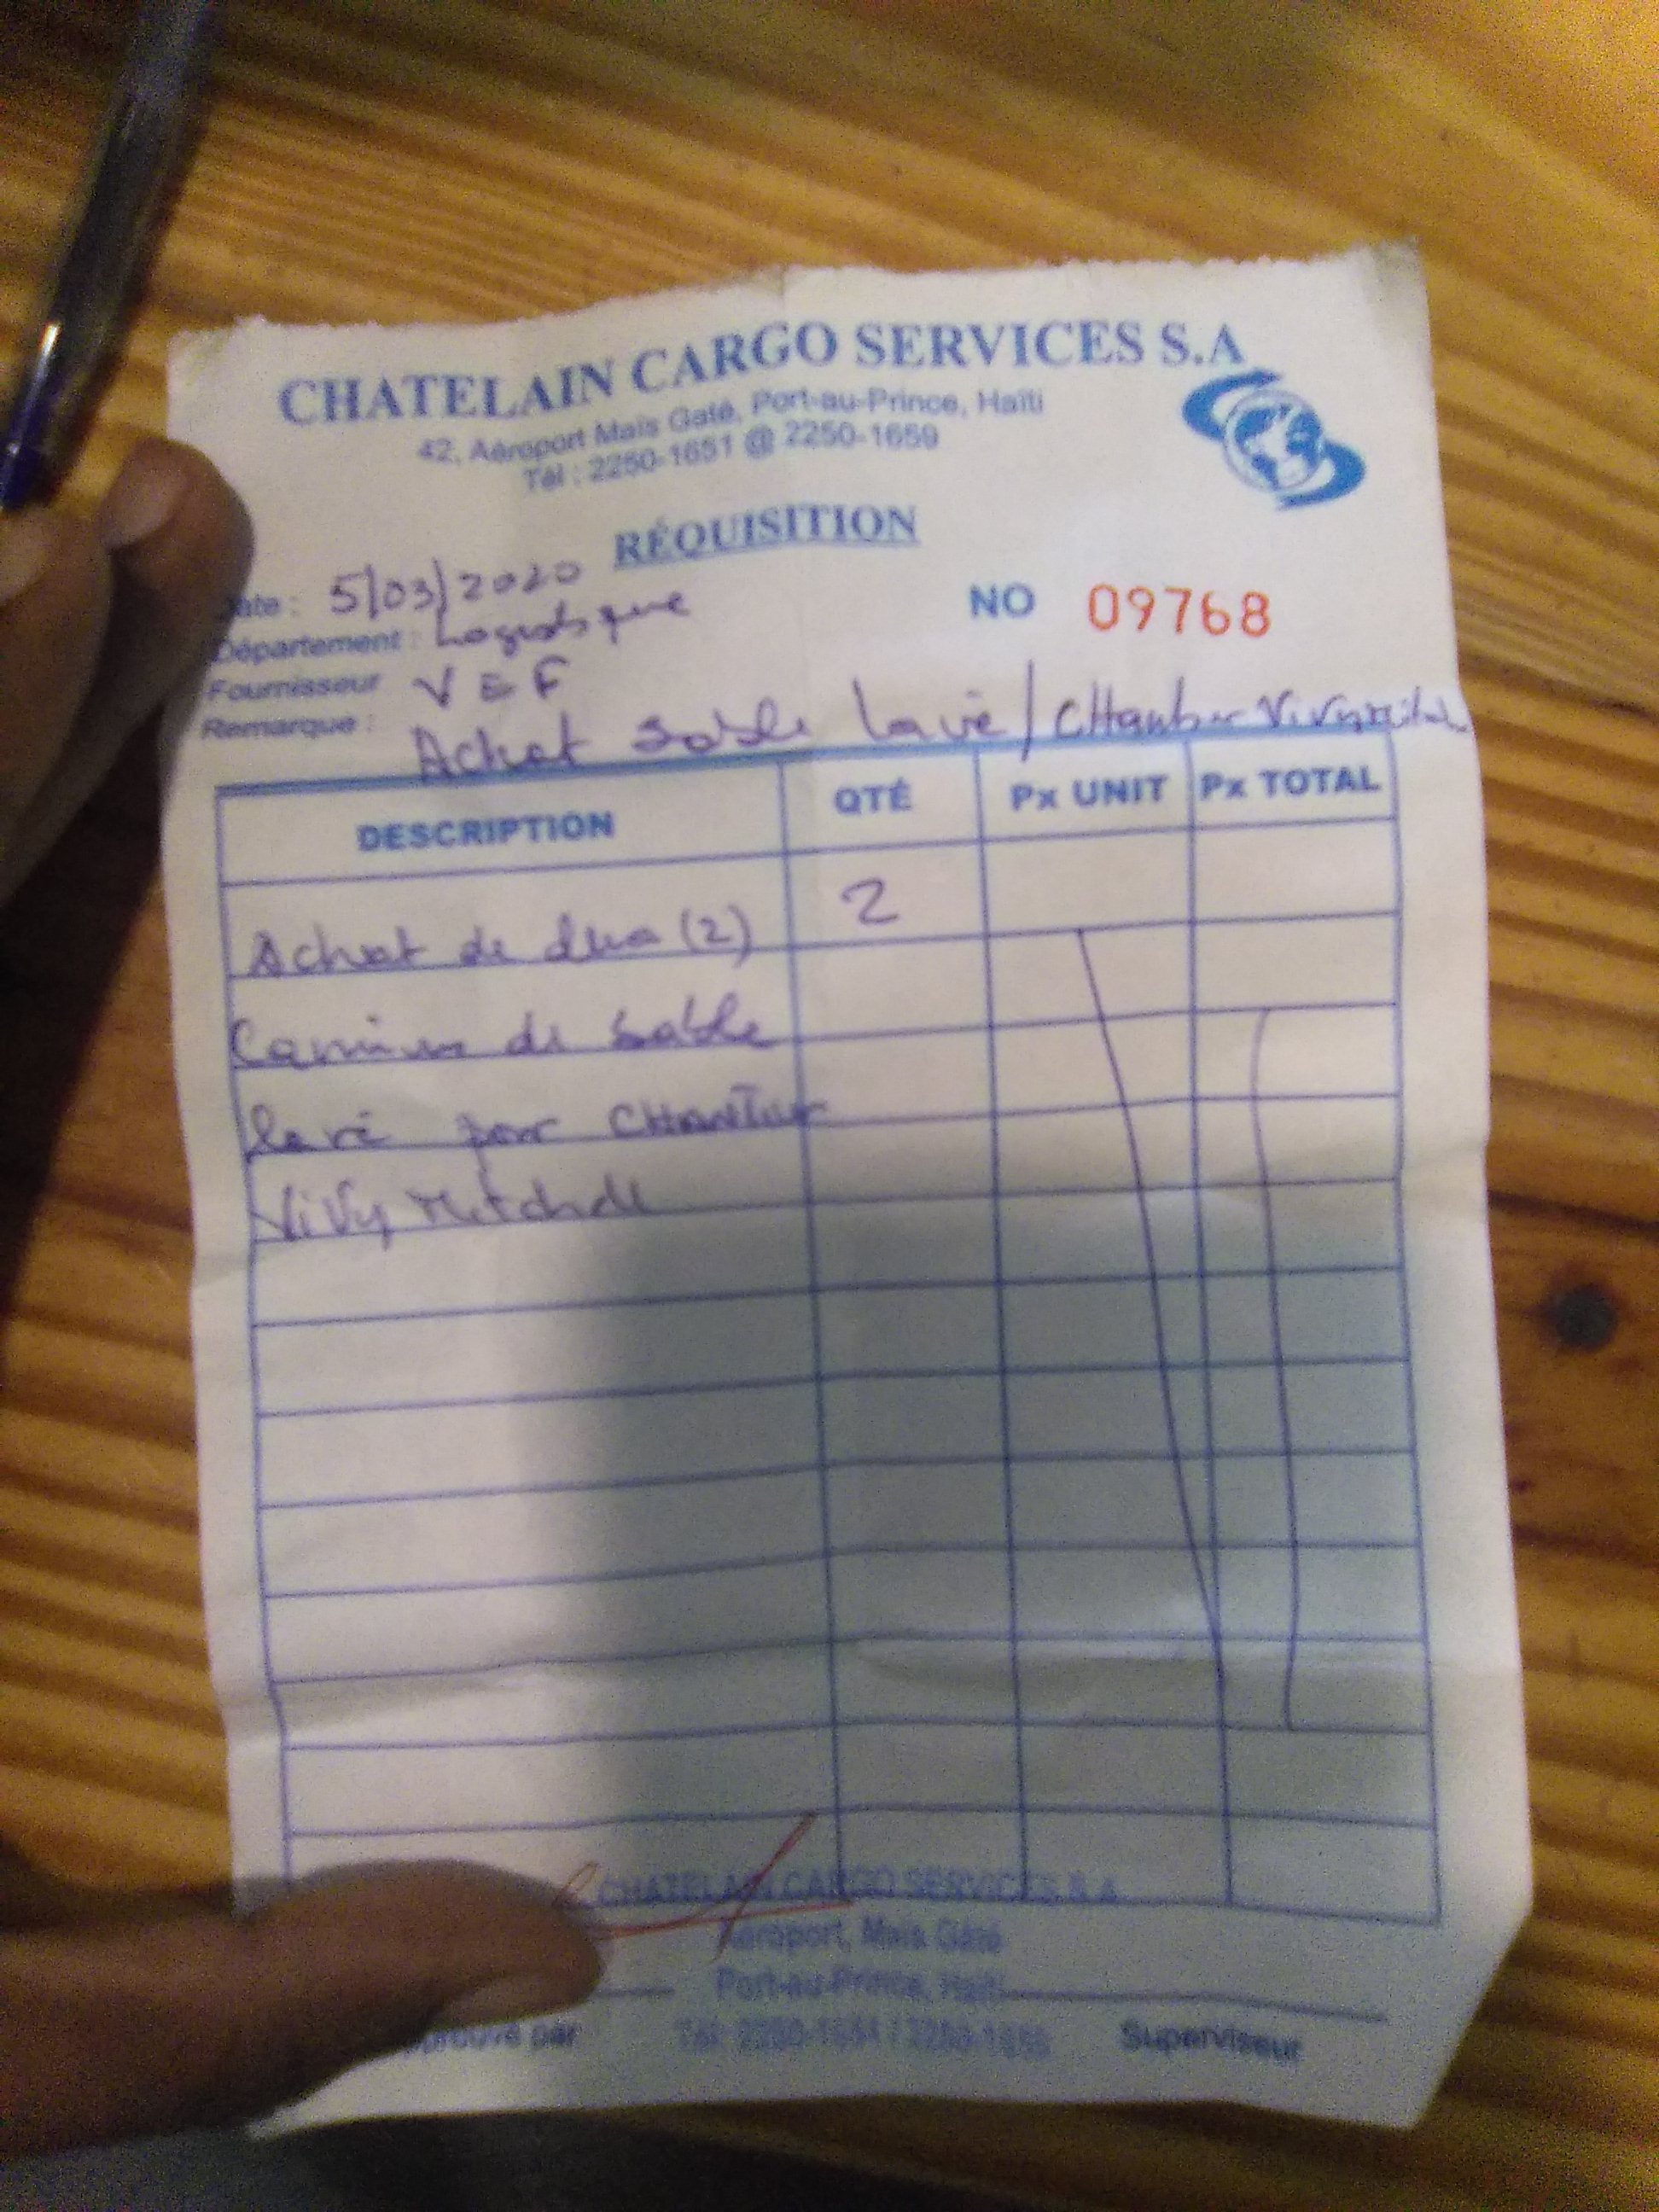 CHATELAIN CARGO SERVICES S.A
42, Aéroport Maïs Gaté, Port-au-Prince, Haïti
Tél : 2250-1651 @ 2250-1659
RÉQUISITION
Date : 5/03/2020
NO 09768
Département : Logistique
Fournisseur V E F
Remarque : Achat sable lavé /
DESCRIPTION QTÉ Px UNIT Px TOTAL
Achat de deux (2) 2
Camion de sable
lavé pour CHANTier
Vivy Mitchell
CHATELAIN CARGO SERVICES S.A
Aéroport, Maïs Gaté
Port-au-Prince, Haïti
pprouvé par Tél: 2250-1651 / 2250- Superviseur